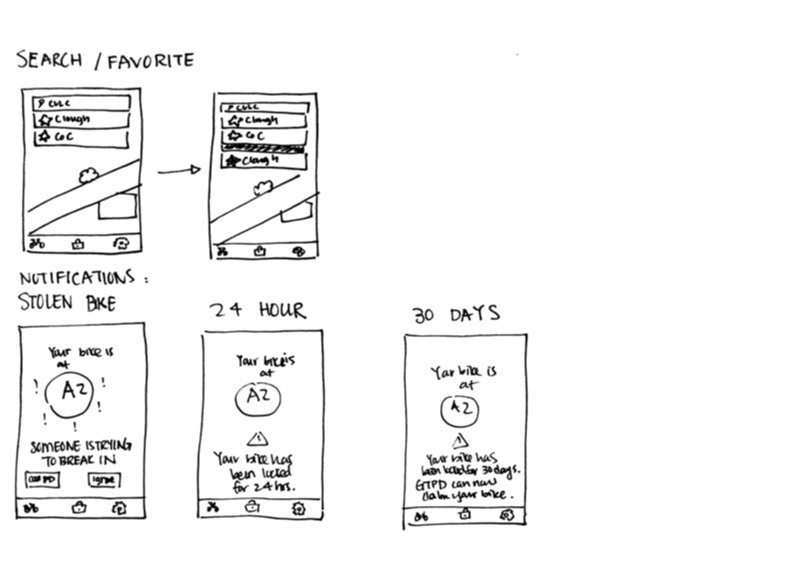 SEARCH / FAVORITE
CULC
Clough
CoC
CULC
Clough
CoC
Clough
NOTIFICATIONS:
STOLEN BIKE
24 HOUR
30 DAYS
Your bike is
at
A2
! ! ! ! !
SOMEONE IS TRYING
TO BREAK IN
Call PD
Ignore
Your bike is
at
A2
!
Your bike has
been locked
for 24 hrs.
Your bike is
at
A2
!
Your bike has
been locked for 30 days.
GTPD can now
claim your bike.